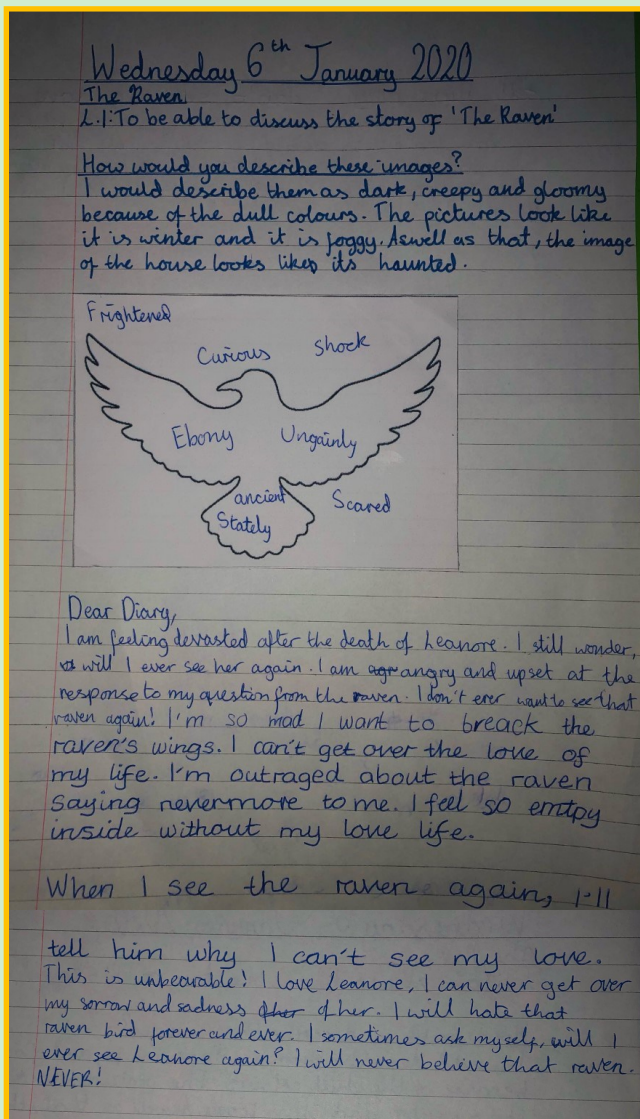 Wednesday 6th January 2020
The Raven
L.I:To be able to discuss the story of 'The Raven'
How would you describe these images?
I would describe them as dark, creepy and gloomy
because of the dull colours. The pictures look like
it is winter and it is foggy. Aswell as that, the image
of the house looks likes it's haunted.
Frightened
Curious Shock
Ebony Ungainly
ancient Scared
Stately
Dear Diary,
I am feeling devasted after the death of Leanore. I still wonder,
will I ever see her again. I am angry and upset at the
response to my question from the raven. I don't ever want to see that
raven again! I'm so mad I want to breack the
raven's wings. I can't get over the love of
my life. I'm outraged about the raven
saying nevermore to me. I feel so emtpy
inside without my love life.
When I see the raven again, I'll
tell him why I can't see my love.
This is unbearable! I love Leanore, I can never get over
my sorrow and sadness of her. I will hate that
raven bird forever and ever. I sometimes ask myself, will I
ever see Leanore again? I will never believe that raven.
NEVER!